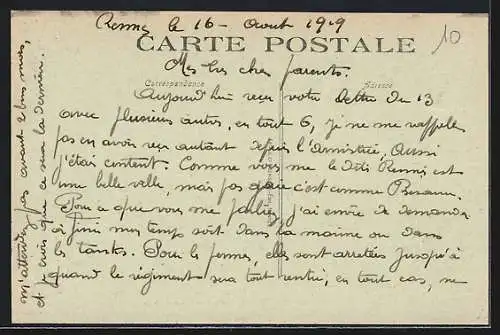 Rennes le 16 - Aout 1919
10
CARTE POSTALE
Mes bs chers parents.
Correspondance
Adresse
Aujourd'hui reçu votre lettre du 13
avec plusieurs autres, en tout 6, je ne me rappelle
pas en avoir reçu autant depuis l'armistice, aussi
j'étais content. Comme vous me le dites Rennes est
une belle ville, mais pas gaie c'est comme
Pour ce que vous me parliez j'ai envie de demander
à finir mes temps soit dans la marine ou dans
les tanks. Pour les permes, elles sont arretées jusqu'à
quand le régiment sera tout rentré, en tout cas, ne
m'attendez pas avant 2 bons mois,
et je crois que ce sera la dernière.